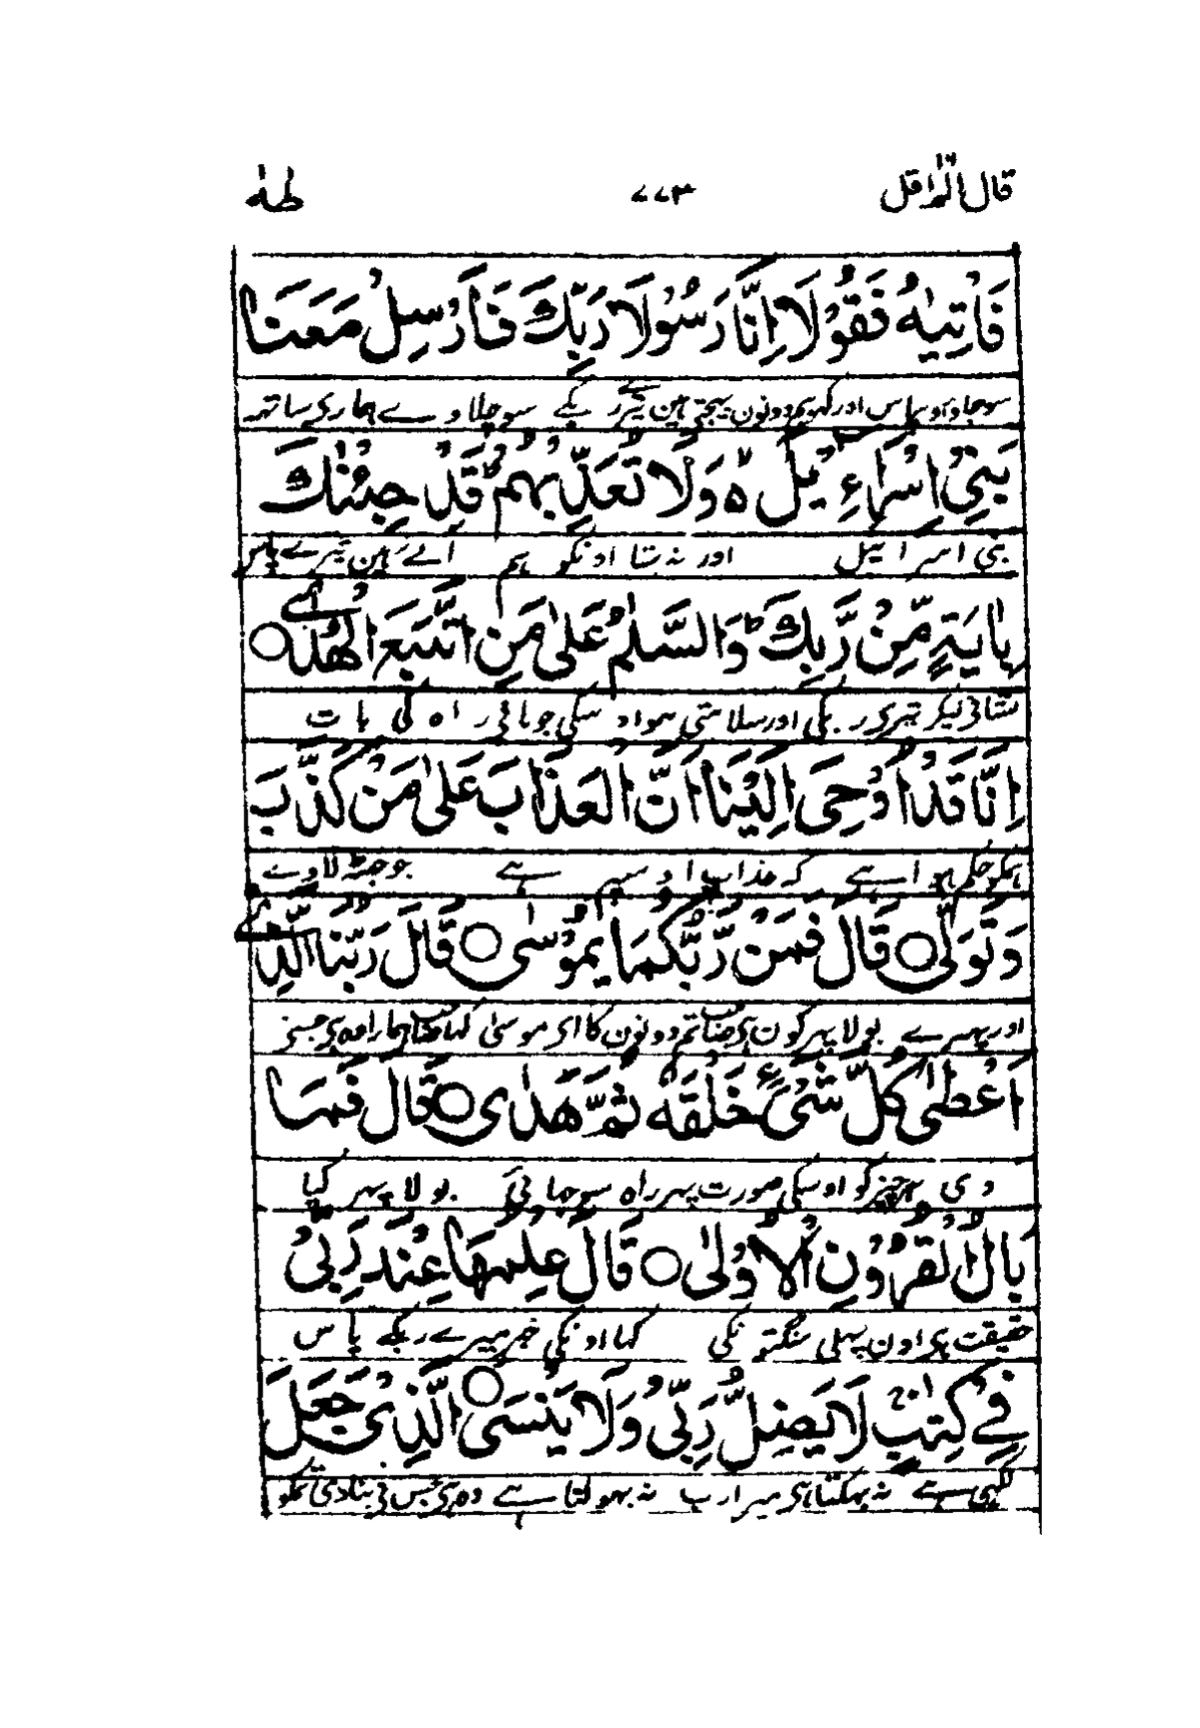 قال الم اقل ۷۷۳ طٰهٰ
فَاْتِيٰهُ فَقُوْلَا اِنَّا رَسُوْلَا رَبِّكَ فَاَرْسِلْ مَعَنَا
سو جاو اوس پاس اور کہو ہم دونون بہیجے ہین تیرے رب کے سو چلا دے ہماری ساتھہ
بَنِيْ اِسْرَاءِيْلَ ەۙ وَلَا تُعَذِّبْهُمْ قَدْ جِئْنٰكَ
بنی اسرائیل اور نہ ستا اونکو ہم آئے ہین تیرے پاس
بِاٰيَةٍ مِّنْ رَّبِّكَ ؕ وَالسَّلٰمُ عَلٰى مَنِ اتَّبَعَ الْهُدٰى ○
نشانی لیکر تیری رب کی اور سلامتی ہو اوسکی جو مانی راہ کی بات
اِنَّا قَدْ اُوْحِيَ اِلَيْنَا اَنَّ الْعَذَابَ عَلٰى مَنْ كَذَّبَ
ہمکو حکم ہوا ہے کہ عذاب اوسپر ہے جو جھٹلاوے
وَتَوَلّٰى ○ قَالَ فَمَنْ رَّبُّكُمَا يٰمُوْسٰى ○ قَالَ رَبُّنَا الَّذِيْ
اور پہرے بولا پہر کون ہی صاحب تم دونون کا ای موسیٰ کہا صاحب ہمارا وہ ہی جسنے
اَعْطٰى كُلَّ شَيْءٍ خَلْقَهٗ ثُمَّ هَدٰى ○ قَالَ فَمَا
دی ہر چیز کو اوسکی صورت پہر راہ سوجہائی بولا پہر کیا
بَالُ الْقُرُوْنِ الْاُوْلٰى ○ قَالَ عِلْمُهَا عِنْدَ رَبِّيْ
حقیقت ہی اون پہلی سنگتونکی کہا اونکی خبر میرے رب کے پاس
فِيْ كِتٰبٍ لَا يَضِلُّ رَبِّيْ وَلَا يَنْسَى ○ الَّذِيْ جَعَلَ
لکہی ہے نہ بہکتا ہی میرا رب نہ بہولتا ہے وہ ہی جس نے بنا دی تمکو